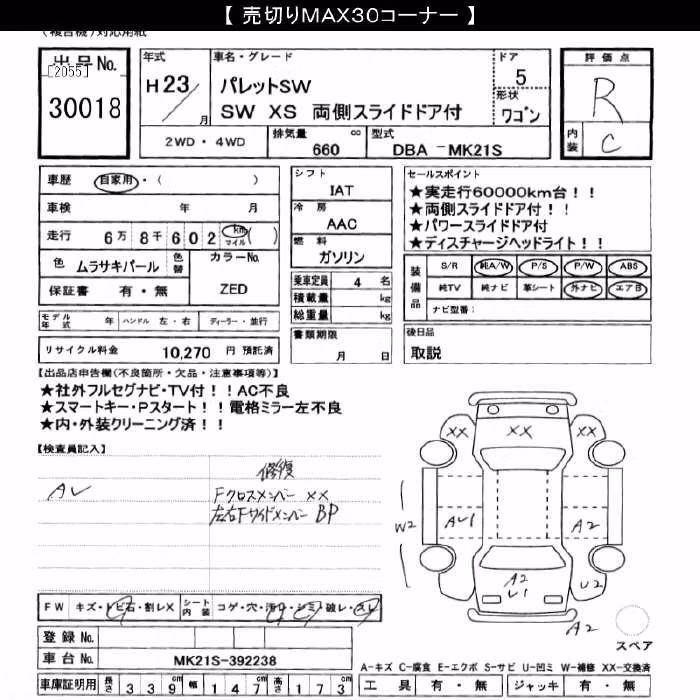 【 売切りMAX30コーナー 】
(複合機)対応用紙
出品No.
[2055]
30018
年式
H23/
月
車名・グレード
パレットSW
SW XS 両側スライドドア付
ドア
5
形状
ワゴン
評価点
R
内装
C
2WD・4WD
排気量
660
cc
型式
DBA -MK21S
車歴
自家用・( )
車検 年 月
走行 6万8千602 km マイル ( )
色 ムラサキパール
色替
カラーNo.
ZED
保証書 有・無
モデル年式 年
ハンドル 左・右
ディーラー・並行
リサイクル料金 10,270 円 預託済
シフト
IAT
冷房
AAC
燃料
ガソリン
乗車定員 4 名
積載量 kg
総重量 kg
書類期限
月 日
セールスポイント
★実走行60000km台!!
★両側スライドドア付!!
★パワースライドドア付
★ディスチャージヘッドライト!!
装備品
S/R 純A/W P/S P/W ABS
純TV 純ナビ 革シート 外ナビ エアB
ナビ型番:
後日品
取説
【出品店申告欄(不良箇所・欠品・注意事項等)】
★社外フルセグナビ・TV付!!AC不良
★スマートキー・Pスタート!!電格ミラー左不良
★内・外装クリーニング済!!
【検査員記入】
AV
修復
Fクロスメンバー XX
左右Fサイドメンバー BP
XX
XX
XX
W2
AU1
A2
A2
U1
U2
A2
スペア
FW キズ・トビ石・割レX
シート内装 コゲ・穴・汚レ・シミ・破レ・スレ
登録No.
車台No. MK21S-392238
車庫証明用 長さ 339cm 幅 147cm 高さ 173cm
A-キズ C-腐食 E-エクボ S-サビ U-凹ミ W-補修 XX-交換済
工具 有・無 ジャッキ 有・無